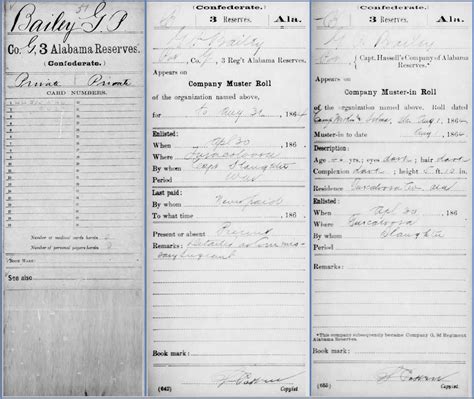 Bailey G P
Co. G, 3 Alabama Reserves.
(Confederate.)
Private Private
CARD NUMBERS.
Number of medical cards herein
Number of personal papers herein
BOOK MARK:
See also
(Confederate.)
3 Reserves. Ala.
G P Bailey
Co. G, 3 Reg't Alabama Reserves.
Appears on
Company Muster Roll
of the organization named above,
for to Aug 31, 1864
Enlisted:
When Apl 30, 186
Where Tuscaloosa
By whom Capt Slaughter
Period War
Last paid:
By whom Never paid
To what time 186
Present or absent Present
Remarks: Detailed as
Book mark:
(642) Copyist.
(Confederate.)
3 Reserves. Ala.
Bailey
Capt. Hassell's Company of Alabama Reserves.*
Appears on
Company Muster-in Roll
of the organization named above. Roll dated
Selma Ala Aug 1, 1864
Muster-in to date Aug 1, 186
Description:
Age years; eyes dark, hair dark
Complexion dark; height ft. in.
Residence Tuscaloosa Ala
Enlisted:
When Apl 30, 186
Where Tuscaloosa
By whom Slaughter
Period
Remarks:
*This company subsequently became Company G, 3d Regiment Alabama Reserves.
Book mark:
Copyist.